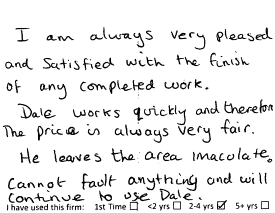 I am always very pleased
and Satisfied with the finish
of any completed work.
Dale works quickly and therefore
The price is always very fair.
He leaves the area imaculate.
Cannot fault anything and will
continue to use Dale.
I have used this firm: 1st Time ☐ <2 yrs ☐ 2-4 yrs ☑ 5+ yrs ☐